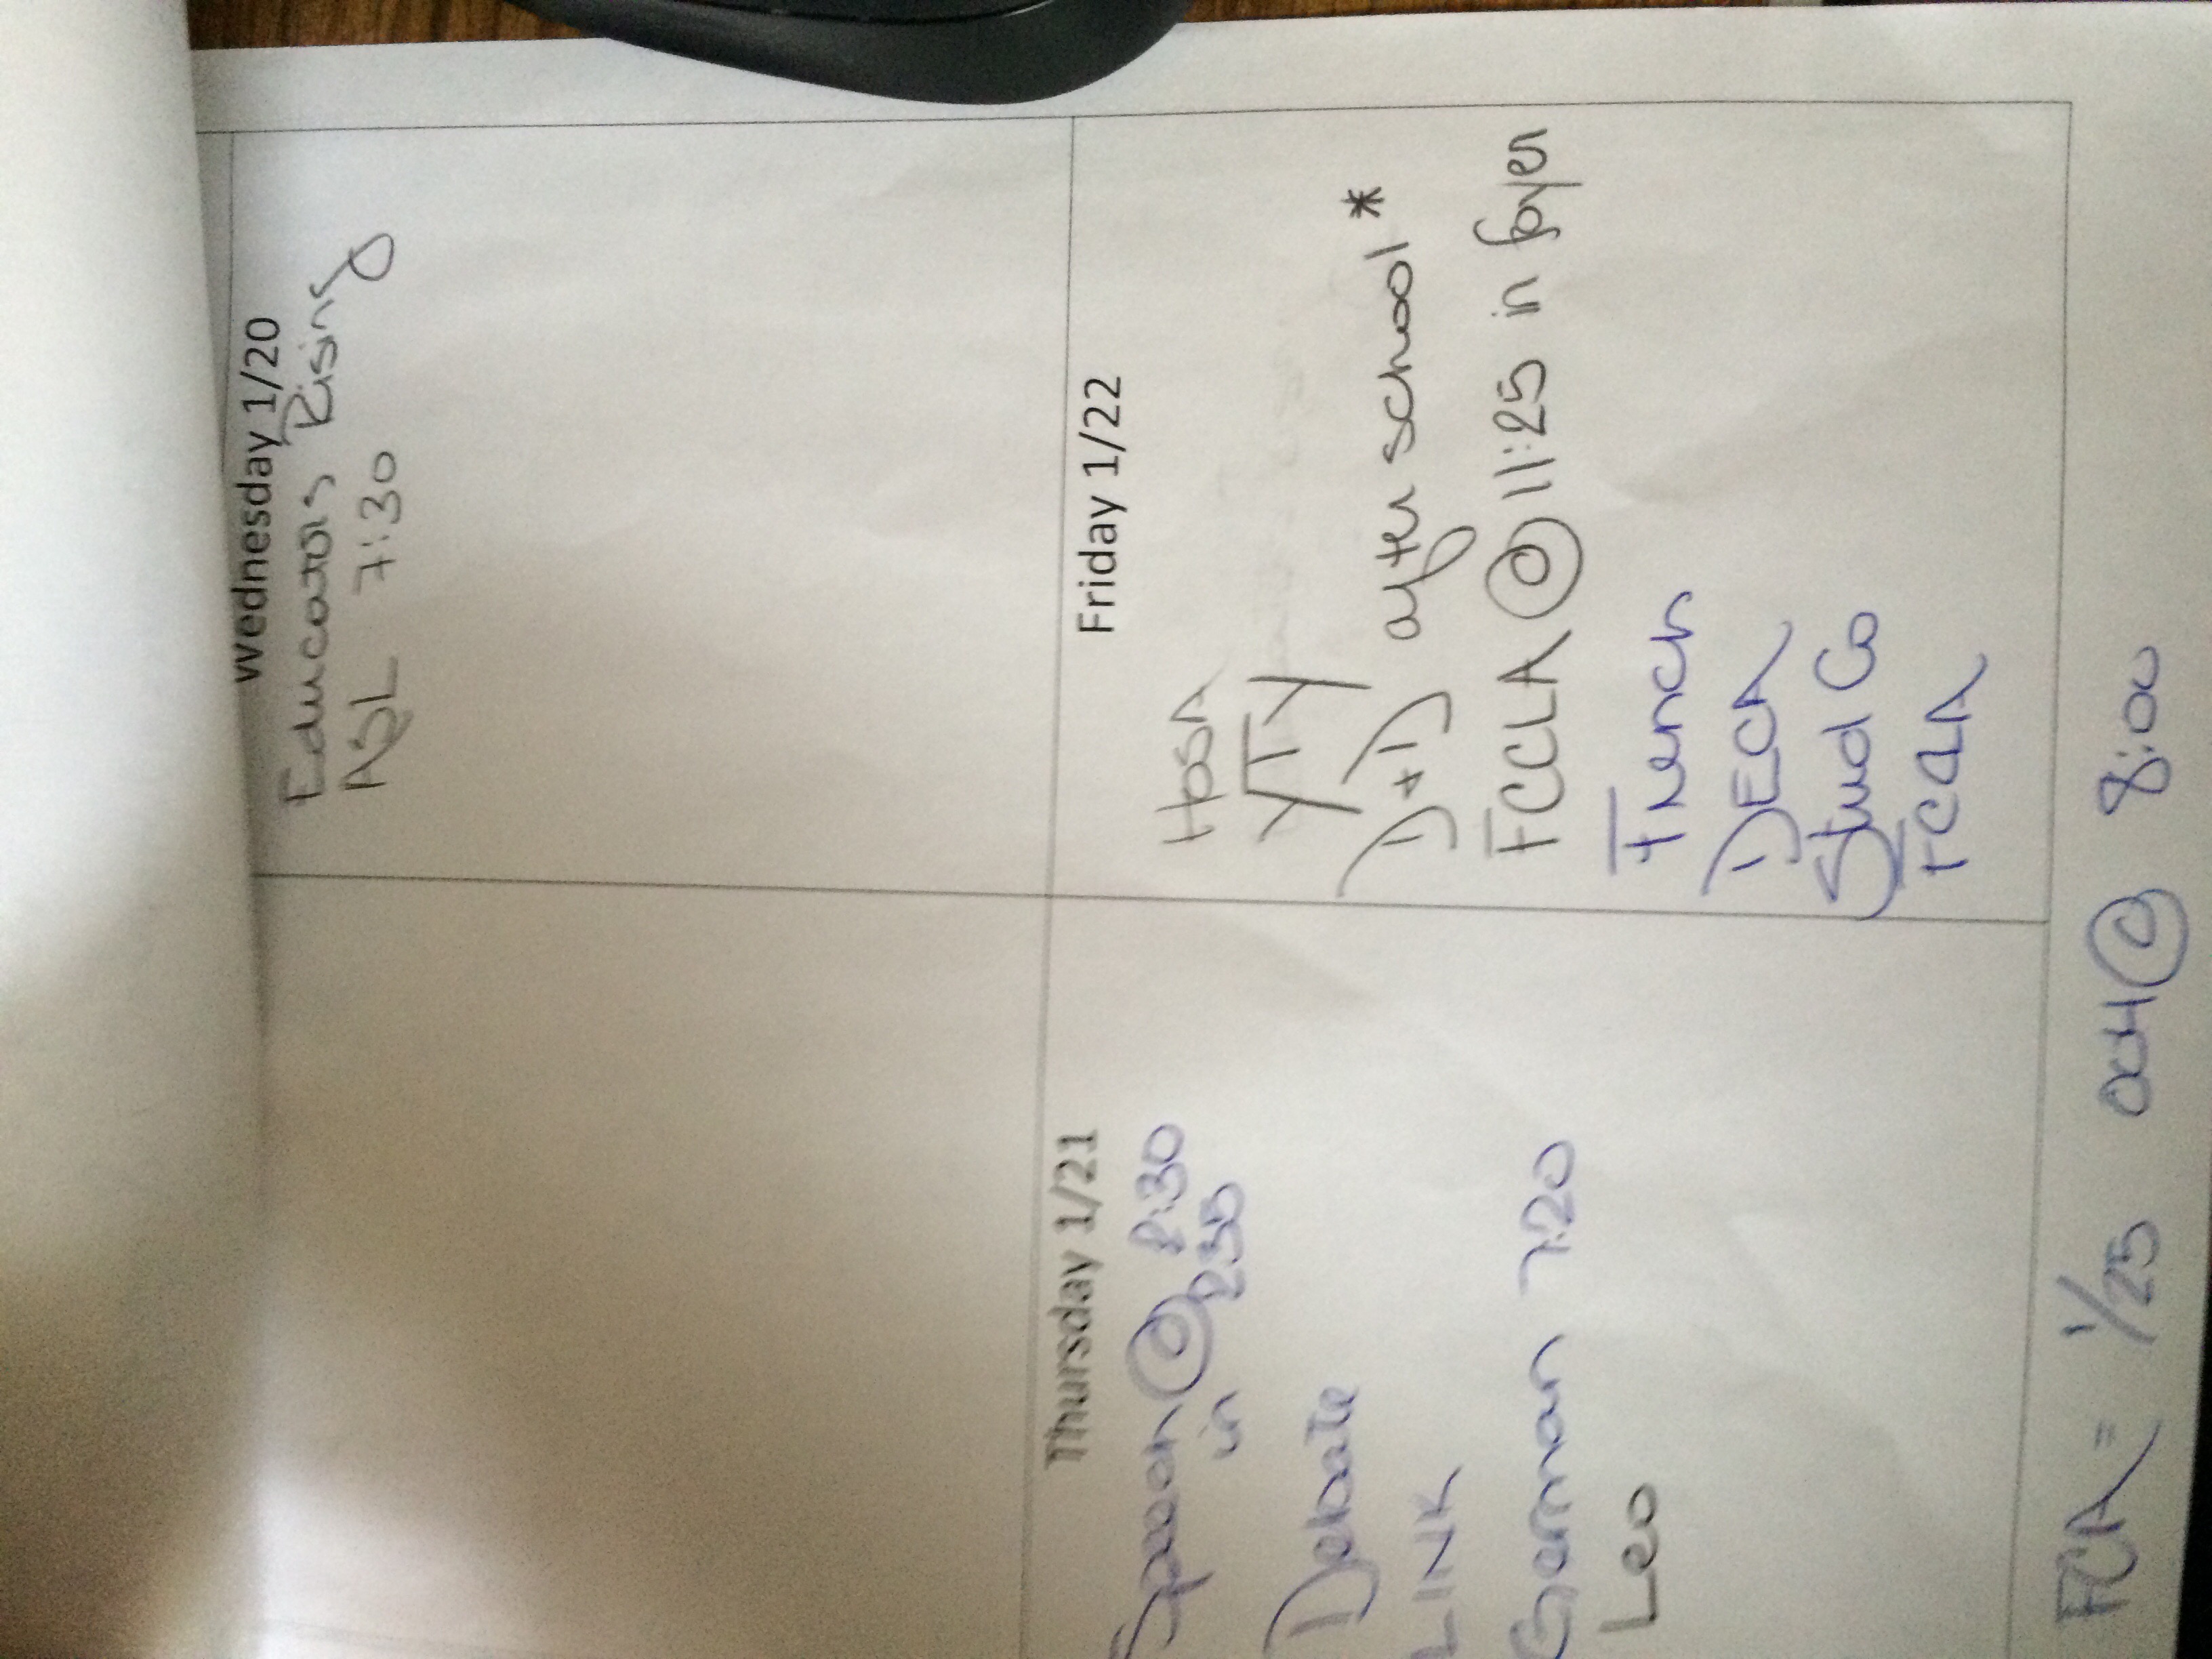 Wednesday 1/20
Educators Rising
ASL 7:30
Thursday 1/21
@ 8:30
in 235
Debate
LINK
German 7:20
Leo
Friday 1/22
HOSA
YTY
D+D after school *
FCCLA @ 11:25 in foyer
French
DECA
Stud Co
FCCLA
FCA = 1/25 @ 8:00